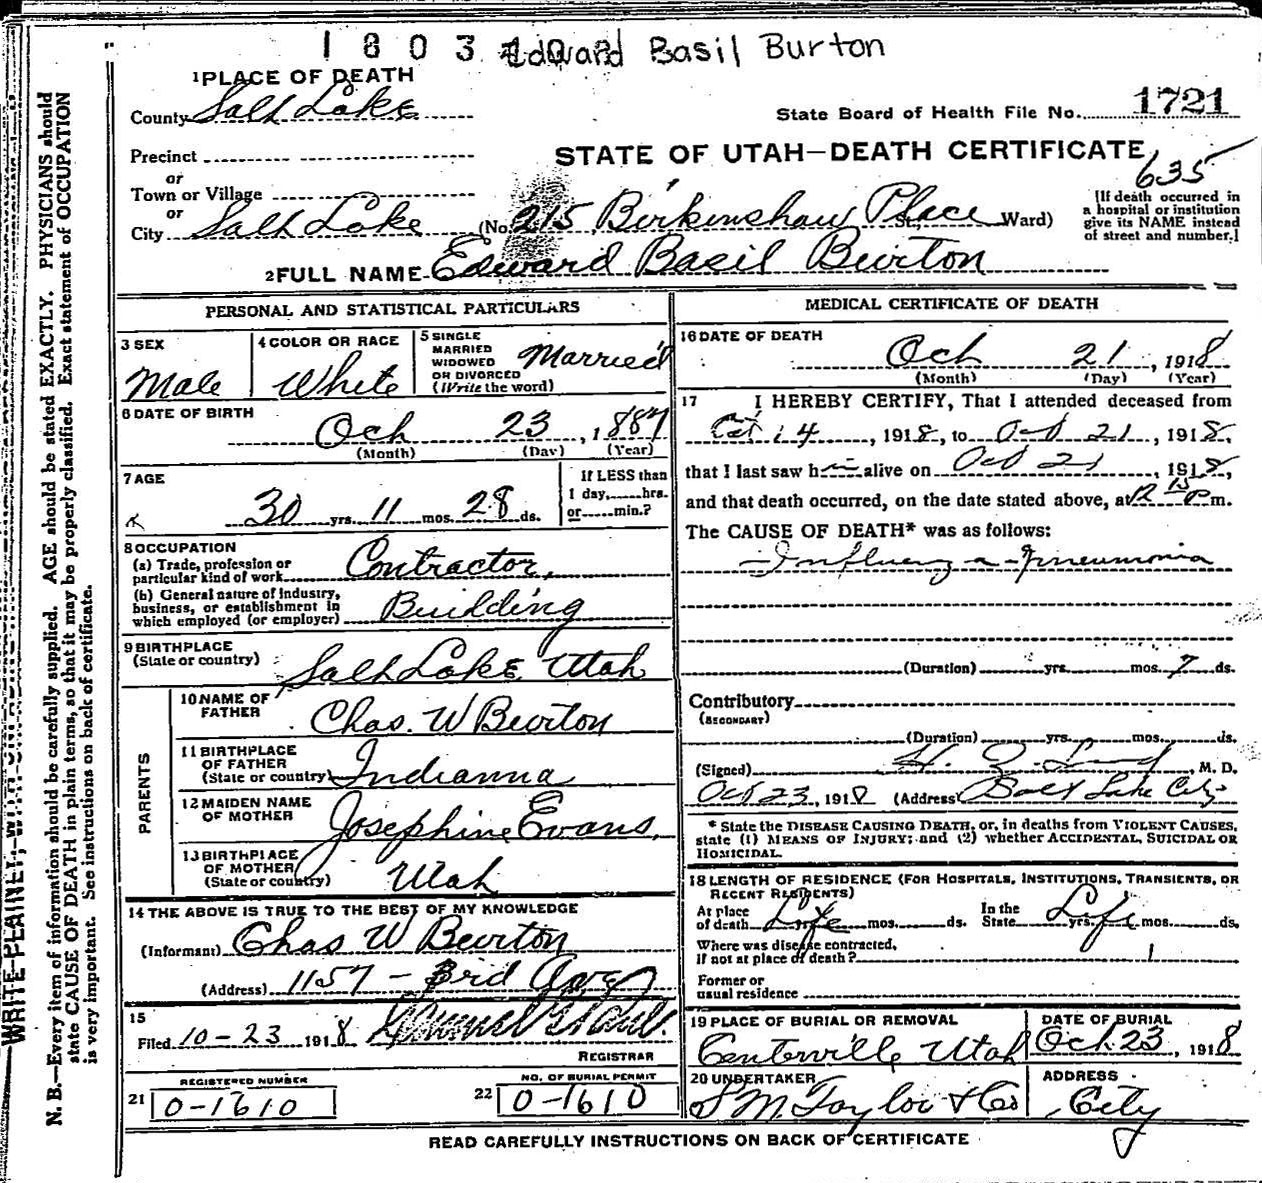 1803
Edward Basil Burton
1 PLACE OF DEATH
County Salt Lake
State Board of Health File No. 1721
Precinct
STATE OF UTAH—DEATH CERTIFICATE
635
or
Town or Village
or
City Salt Lake (No. 215 Birkinshaw Place St., Ward)
[If death occurred in a hospital or institution give its NAME instead of street and number.]
2 FULL NAME Edward Basil Burton
PERSONAL AND STATISTICAL PARTICULARS
3 SEX Male
4 COLOR OR RACE White
5 SINGLE MARRIED WIDOWED OR DIVORCED (Write the word) Married
6 DATE OF BIRTH Oct 23, 1887
(Month) (Day) (Year)
7 AGE 30 yrs. 11 mos. 28 ds.
If LESS than 1 day, hrs. or min.?
8 OCCUPATION
(a) Trade, profession or particular kind of work Contractor,
(b) General nature of industry, business, or establishment in which employed (or employer) Building
9 BIRTHPLACE (State or country) Salt Lake Utah
PARENTS
10 NAME OF FATHER Chas. W Burton
11 BIRTHPLACE OF FATHER (State or country) Indianna
12 MAIDEN NAME OF MOTHER Josephine Evans,
13 BIRTHPLACE OF MOTHER (State or country) Utah
14 THE ABOVE IS TRUE TO THE BEST OF MY KNOWLEDGE
(Informant) Chas W Burton
(Address) 1157 - 3rd Ave
15
Filed 10-23 1918
REGISTRAR
REGISTERED NUMBER
21 0-1610
NO. OF BURIAL PERMIT
22 0-1610
MEDICAL CERTIFICATE OF DEATH
16 DATE OF DEATH
Oct 21, 1918
(Month) (Day) (Year)
17 I HEREBY CERTIFY, That I attended deceased from
Oct 14, 1918, to Oct 21, 1918,
that I last saw him alive on Oct 21, 1918,
and that death occurred, on the date stated above, at 12 15 P m.
The CAUSE OF DEATH* was as follows:
Influenza - Pneumonia
(Duration) yrs. mos. 7 ds.
Contributory
(SECONDARY)
(Duration) yrs. mos. ds.
(Signed) M. D.
Oct 23, 1918 (Address) Salt Lake City
* State the DISEASE CAUSING DEATH, or, in deaths from VIOLENT CAUSES,
state (1) MEANS OF INJURY; and (2) whether ACCIDENTAL, SUICIDAL OR
HOMICIDAL.
18 LENGTH OF RESIDENCE (FOR HOSPITALS, INSTITUTIONS, TRANSIENTS, OR
RECENT RESIDENTS)
At place of death Life yrs. mos. ds. In the State Life yrs. mos. ds.
Where was disease contracted,
if not at place of death?
Former or
usual residence
19 PLACE OF BURIAL OR REMOVAL Centerville Utah
DATE OF BURIAL Oct. 23, 1918
20 UNDERTAKER S M. Taylor & Co
ADDRESS City
READ CAREFULLY INSTRUCTIONS ON BACK OF CERTIFICATE
WRITE PLAINLY, WITH UNFADING INK
N. B.—Every item of information should be carefully supplied. AGE should be stated EXACTLY. PHYSICIANS should
state CAUSE OF DEATH in plain terms, so that it may be properly classified. Exact statement of OCCUPATION
is very important. See instructions on back of certificate.